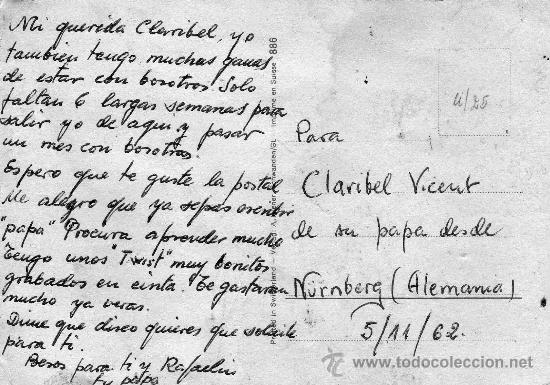 Mi querida Claribel, yo
tambien tengo muchas ganas
de estar con bosotros. Solo
faltan 6 largas semanas para
salir yo de aqui y pasar
un mes con bosotros.
Espero que te guste la postal
Me alegro que ya sepas escribir
"papa" Procura aprender mucho
Tengo unos "Twist" muy bonitos
grabados en cinta. Te gustaran
mucho ya veras.
Dime que disco quieres que solicite
para ti.
Besos para ti y Rafaelin
tu papa
886
Imprimé en Suisse
Printed in Switzerland
4/25
Para
Claribel Vicent
de su papa desde
Nürnberg (Alemania)
5/11/62.
© todocoleccion
www.todocoleccion.net